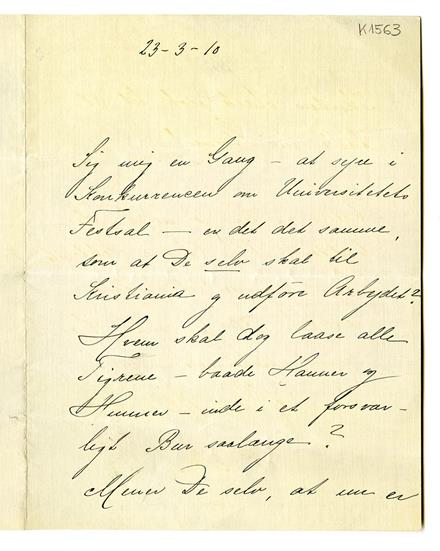 K1563
23-3-10
Sig mig en Gang - at sejre i
Konkurrencen om Universitetets
Festsal - er det det samme,
som at De selv skal til
Kristiania og udføre Arbejdet?
Hvem skal dog laase alle
Tigrene - baade Hanner og
Hunner - inde i et forsvar-
ligt Bur saalange?
Mener De selv, at nu er